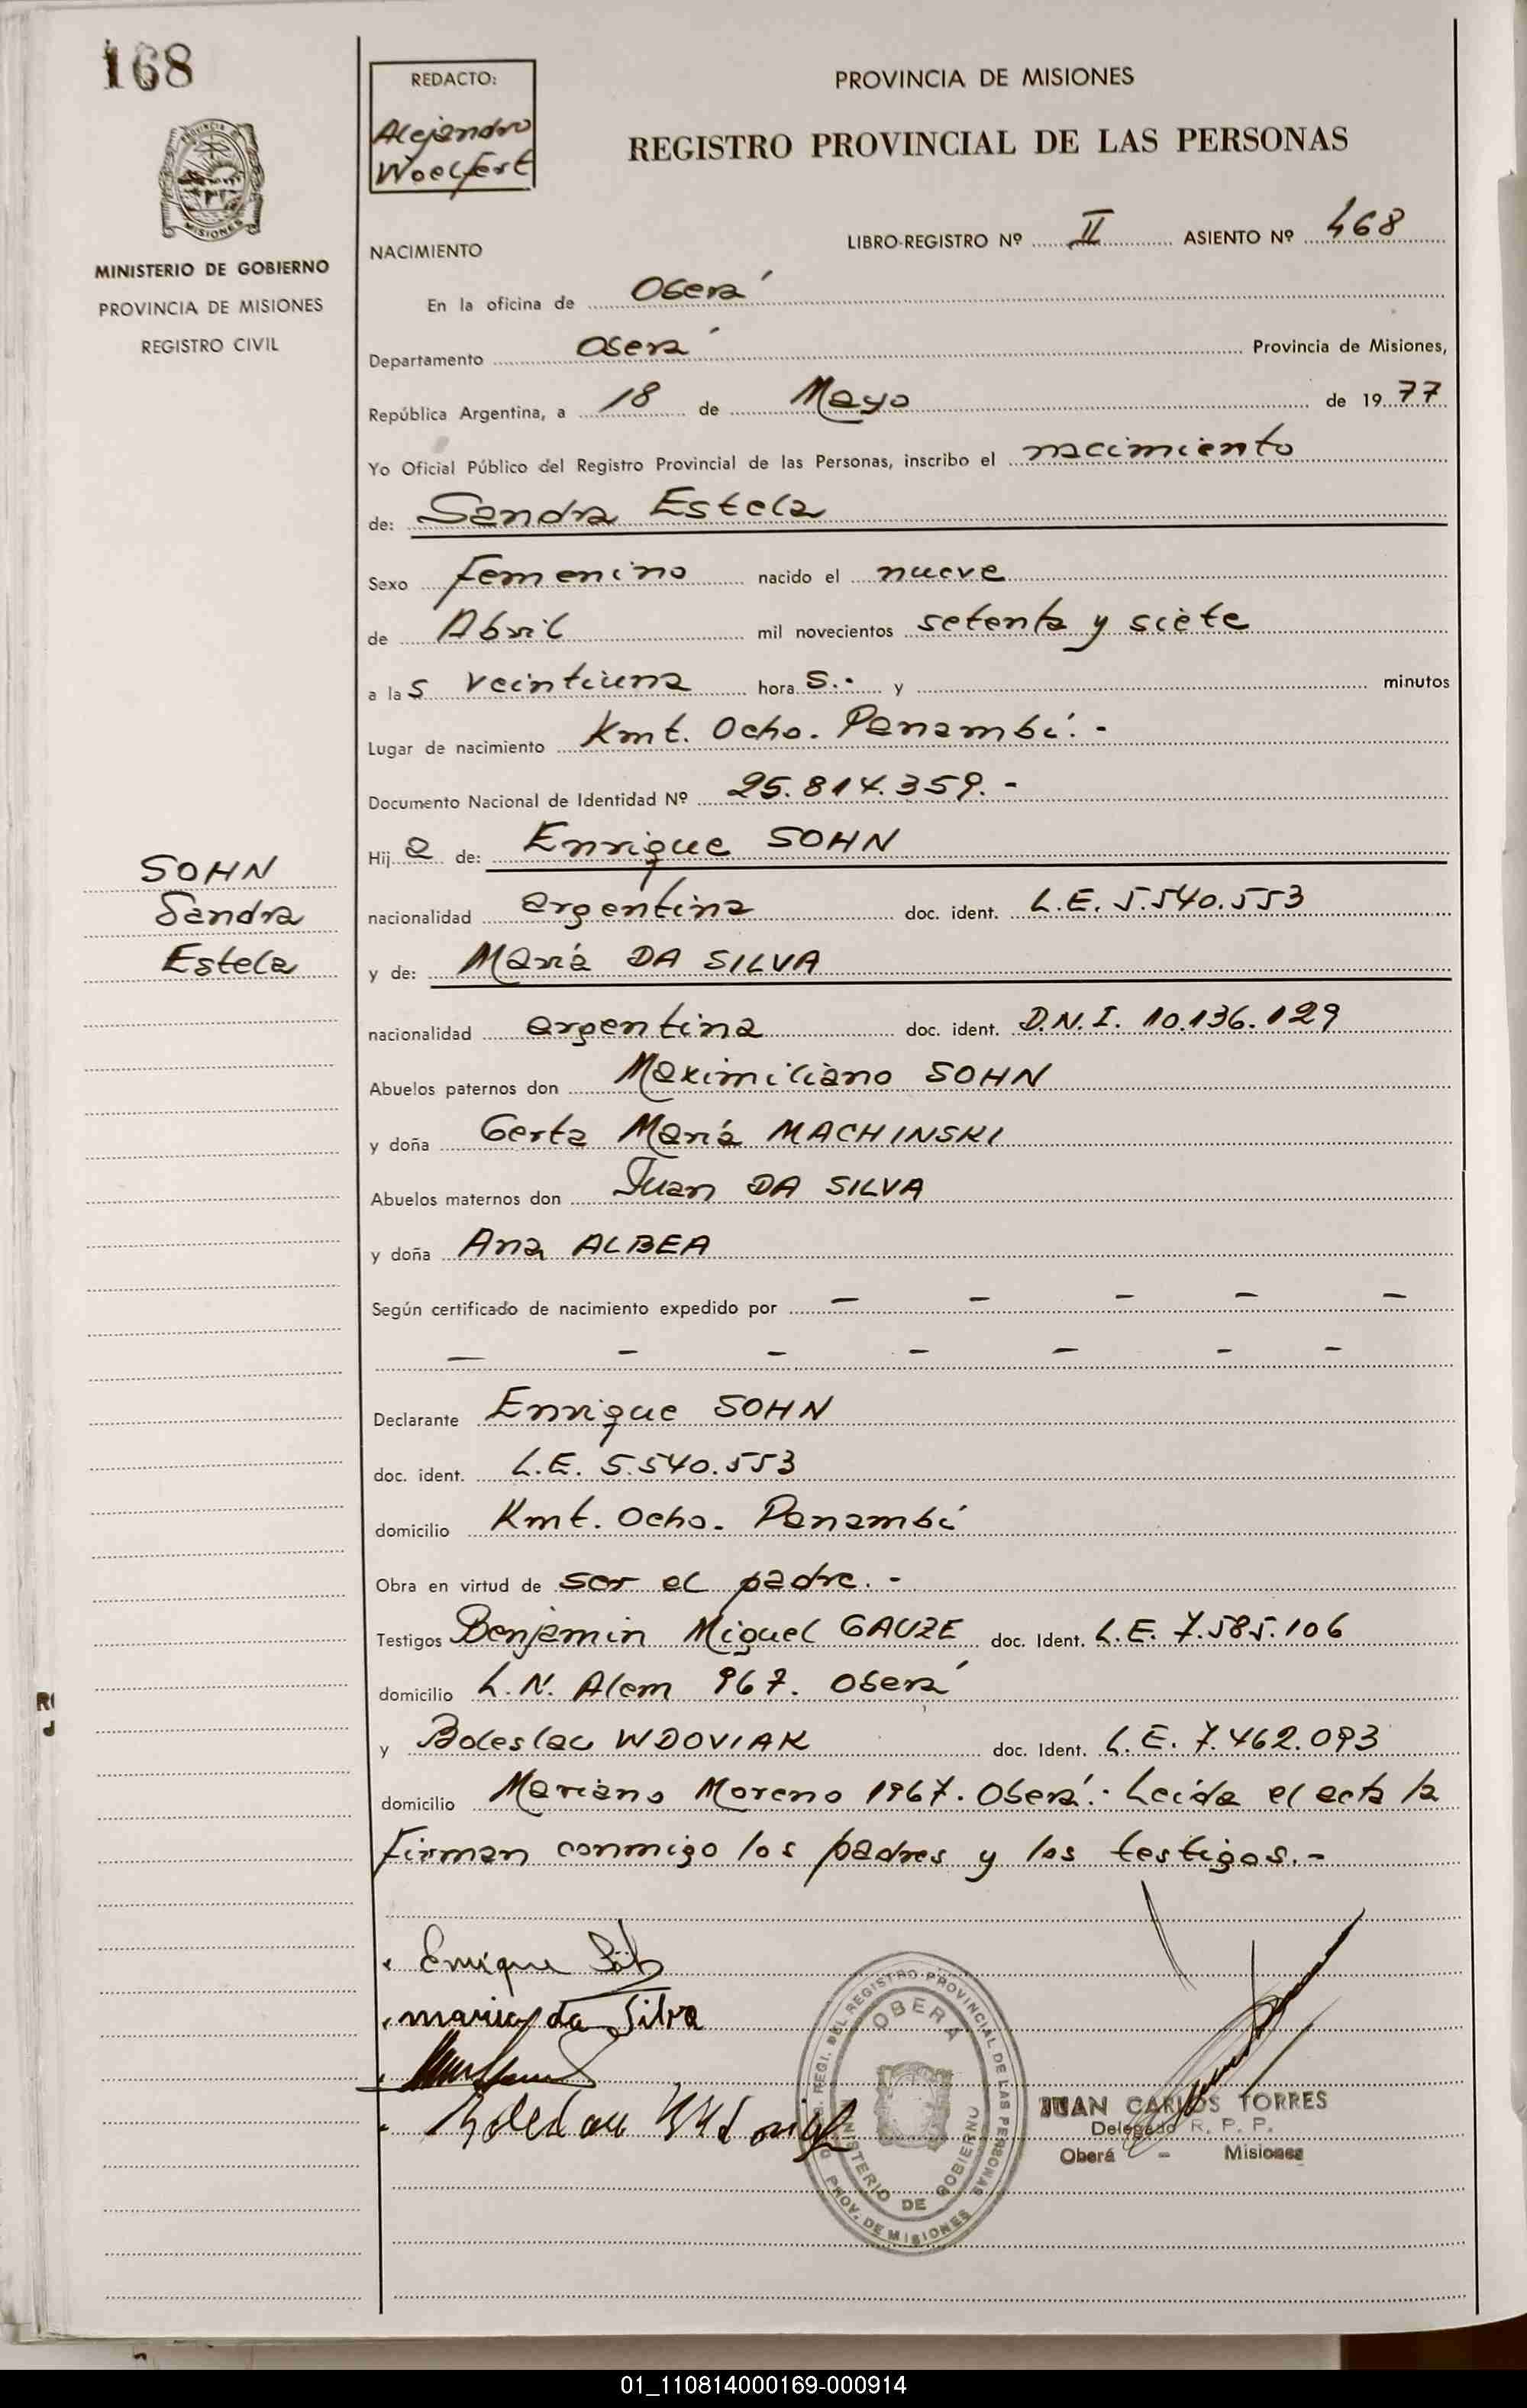 168
PROVINCIA DE MISIONES
MINISTERIO DE GOBIERNO
PROVINCIA DE MISIONES
REGISTRO CIVIL
REDACTO:
Alejandro
Woelfert
PROVINCIA DE MISIONES
REGISTRO PROVINCIAL DE LAS PERSONAS
NACIMIENTO
LIBRO-REGISTRO Nº II ASIENTO Nº 468
En la oficina de Oberá
Departamento Oberá Provincia de Misiones,
República Argentina, a 18 de Mayo de 1977
Yo Oficial Público del Registro Provincial de las Personas, inscribo el nacimiento
de: Sandra Estela
Sexo femenino nacido el nueve
de Abril mil novecientos setenta y siete
a las veintiuna horas.- y minutos
Lugar de nacimiento Kmt. Ocho. Panambí.-
Documento Nacional de Identidad Nº 25.814.359.-
Hija de: Enrique SOHN
SOHN
Sandra
Estela
nacionalidad argentina doc. ident. L.E. 5.540.553
y de: María DA SILVA
nacionalidad argentina doc. ident. D.N.I. 10.136.129
Abuelos paternos don Maximiliano SOHN
y doña Gerta María MACHINSKI
Abuelos maternos don Juan DA SILVA
y doña Ana ALBEA
Según certificado de nacimiento expedido por — — — — —
— — — — — — —
Declarante Enrique SOHN
doc. ident. L.E. 5.540.553
domicilio Kmt. Ocho. Panambí
Obra en virtud de ser el padre.-
Testigos Benjamin Miguel GAUZE doc. Ident. L.E. 7.585.106
domicilio L.N. Alem 967. Oberá
y Boleslao WDOVIAK doc. Ident. L.E. 7.462.093
domicilio Mariano Moreno 1967. Oberá.- Leída el acta la
firman conmigo los padres y los testigos.-
Enrique
maria da Silva
REGISTRO PROVINCIAL DE LAS PERSONAS
OBERA
MINISTERIO DE GOBIERNO
PROV. DE MISIONES
JUAN CARLOS TORRES
Delegado R. P. P.
Oberá - Misiones
01_110814000169-000914